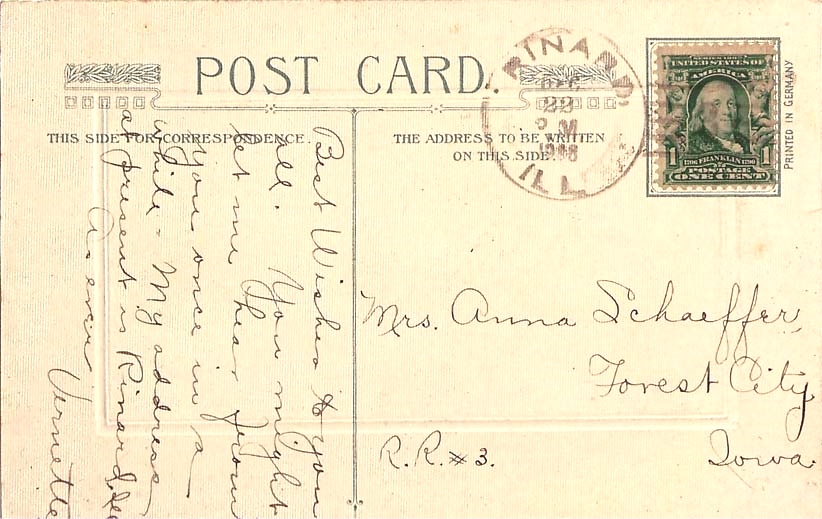 POST CARD.
THIS SIDE FOR CORRESPONDENCE.
THE ADDRESS TO BE WRITTEN
ON THIS SIDE.
RINARD
DEC
22
PM
1908
ILL.
SERIES 1902
UNITED STATES OF
AMERICA
1 1706 FRANKLIN 1790 1
POSTAGE
ONE CENT
PRINTED IN GERMANY
Best Wishes to you
all. You might
let me hear from
you once in a
while - My address
at present is Rinard, Ill
As ever
Vernetta
Mrs. Anna Schaeffer,
Forest City
R.R. #3.
Iowa.